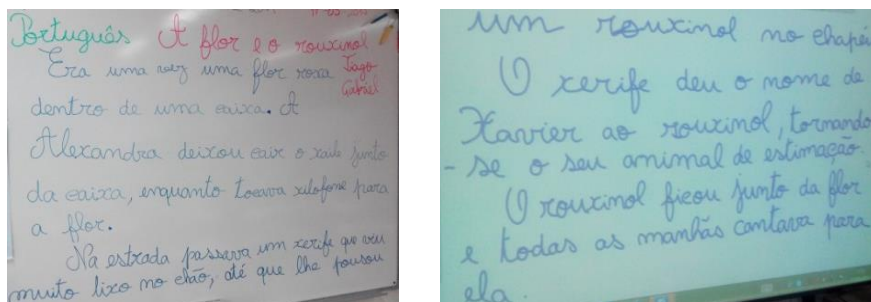 Português A flor e o rouxinol
Era uma vez uma flor roxa
Tiago
Gabriel
dentro de uma caixa. A
Alexandra deixou cair o xaile junto
da caixa, enquanto tocava xilofone para
a flor.
Na estrada passava um xerife que viu
muito lixo no chão, até que lhe pousou
um rouxinol no chapéu
O xerife deu o nome de
Xavier ao rouxinol, tornando
-se o seu animal de estimação.
O rouxinol ficou junto da flor
e todas as manhãs cantava para
ela.